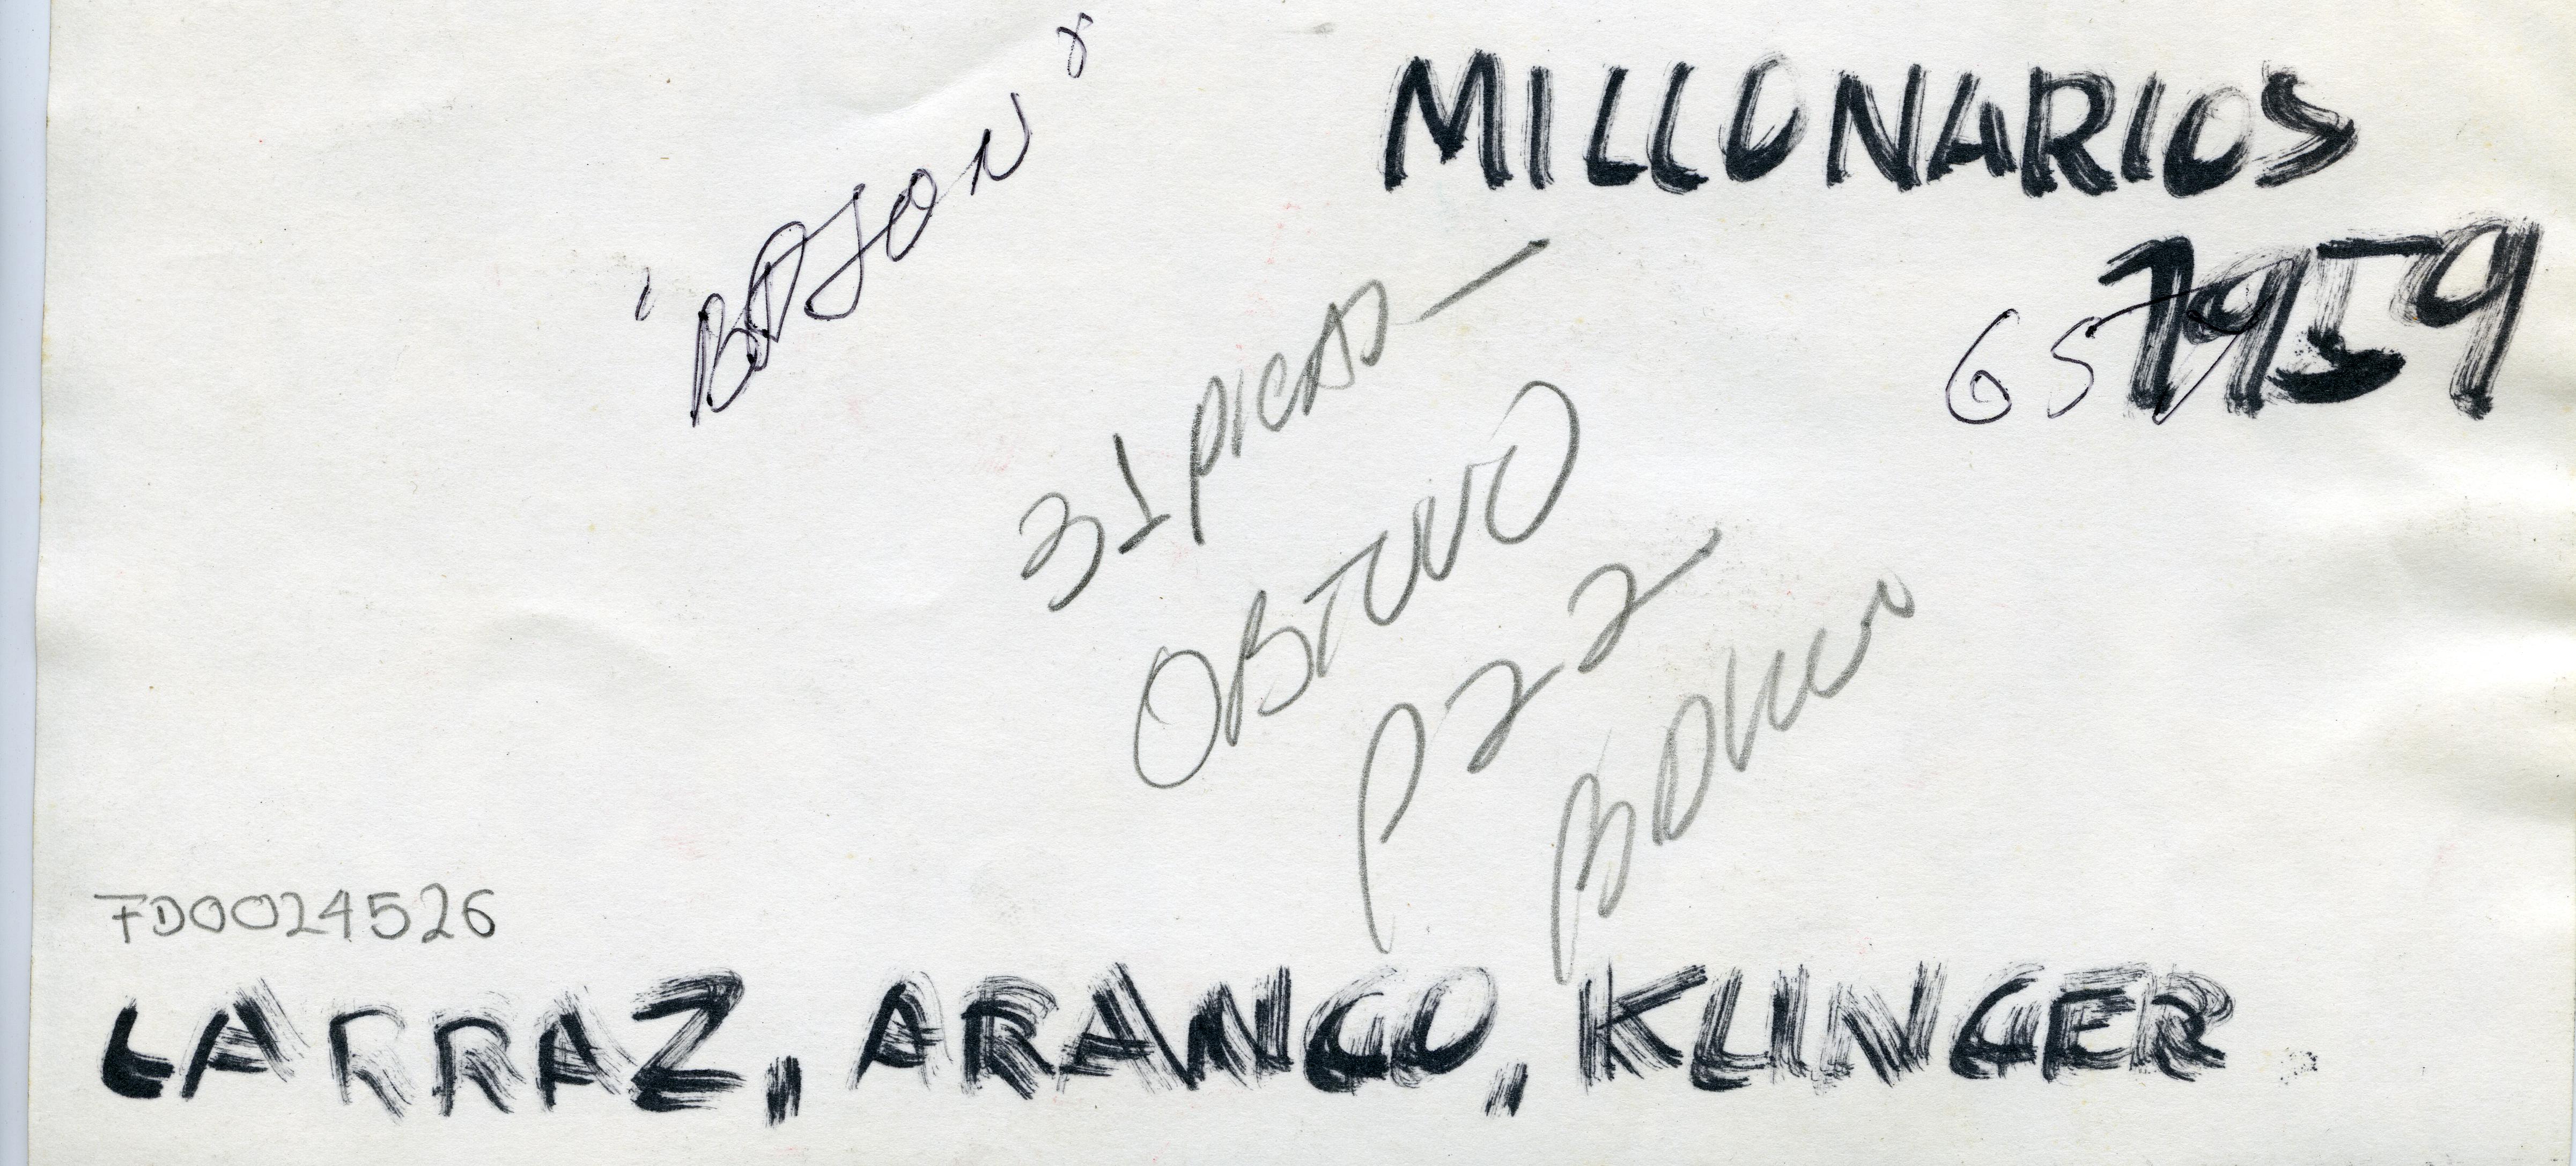 MILLONARIOS
1959
31 PICAS —
OBTUVO
P 22
FD0024526
LARRAZ, ARANGO, KLINGER.